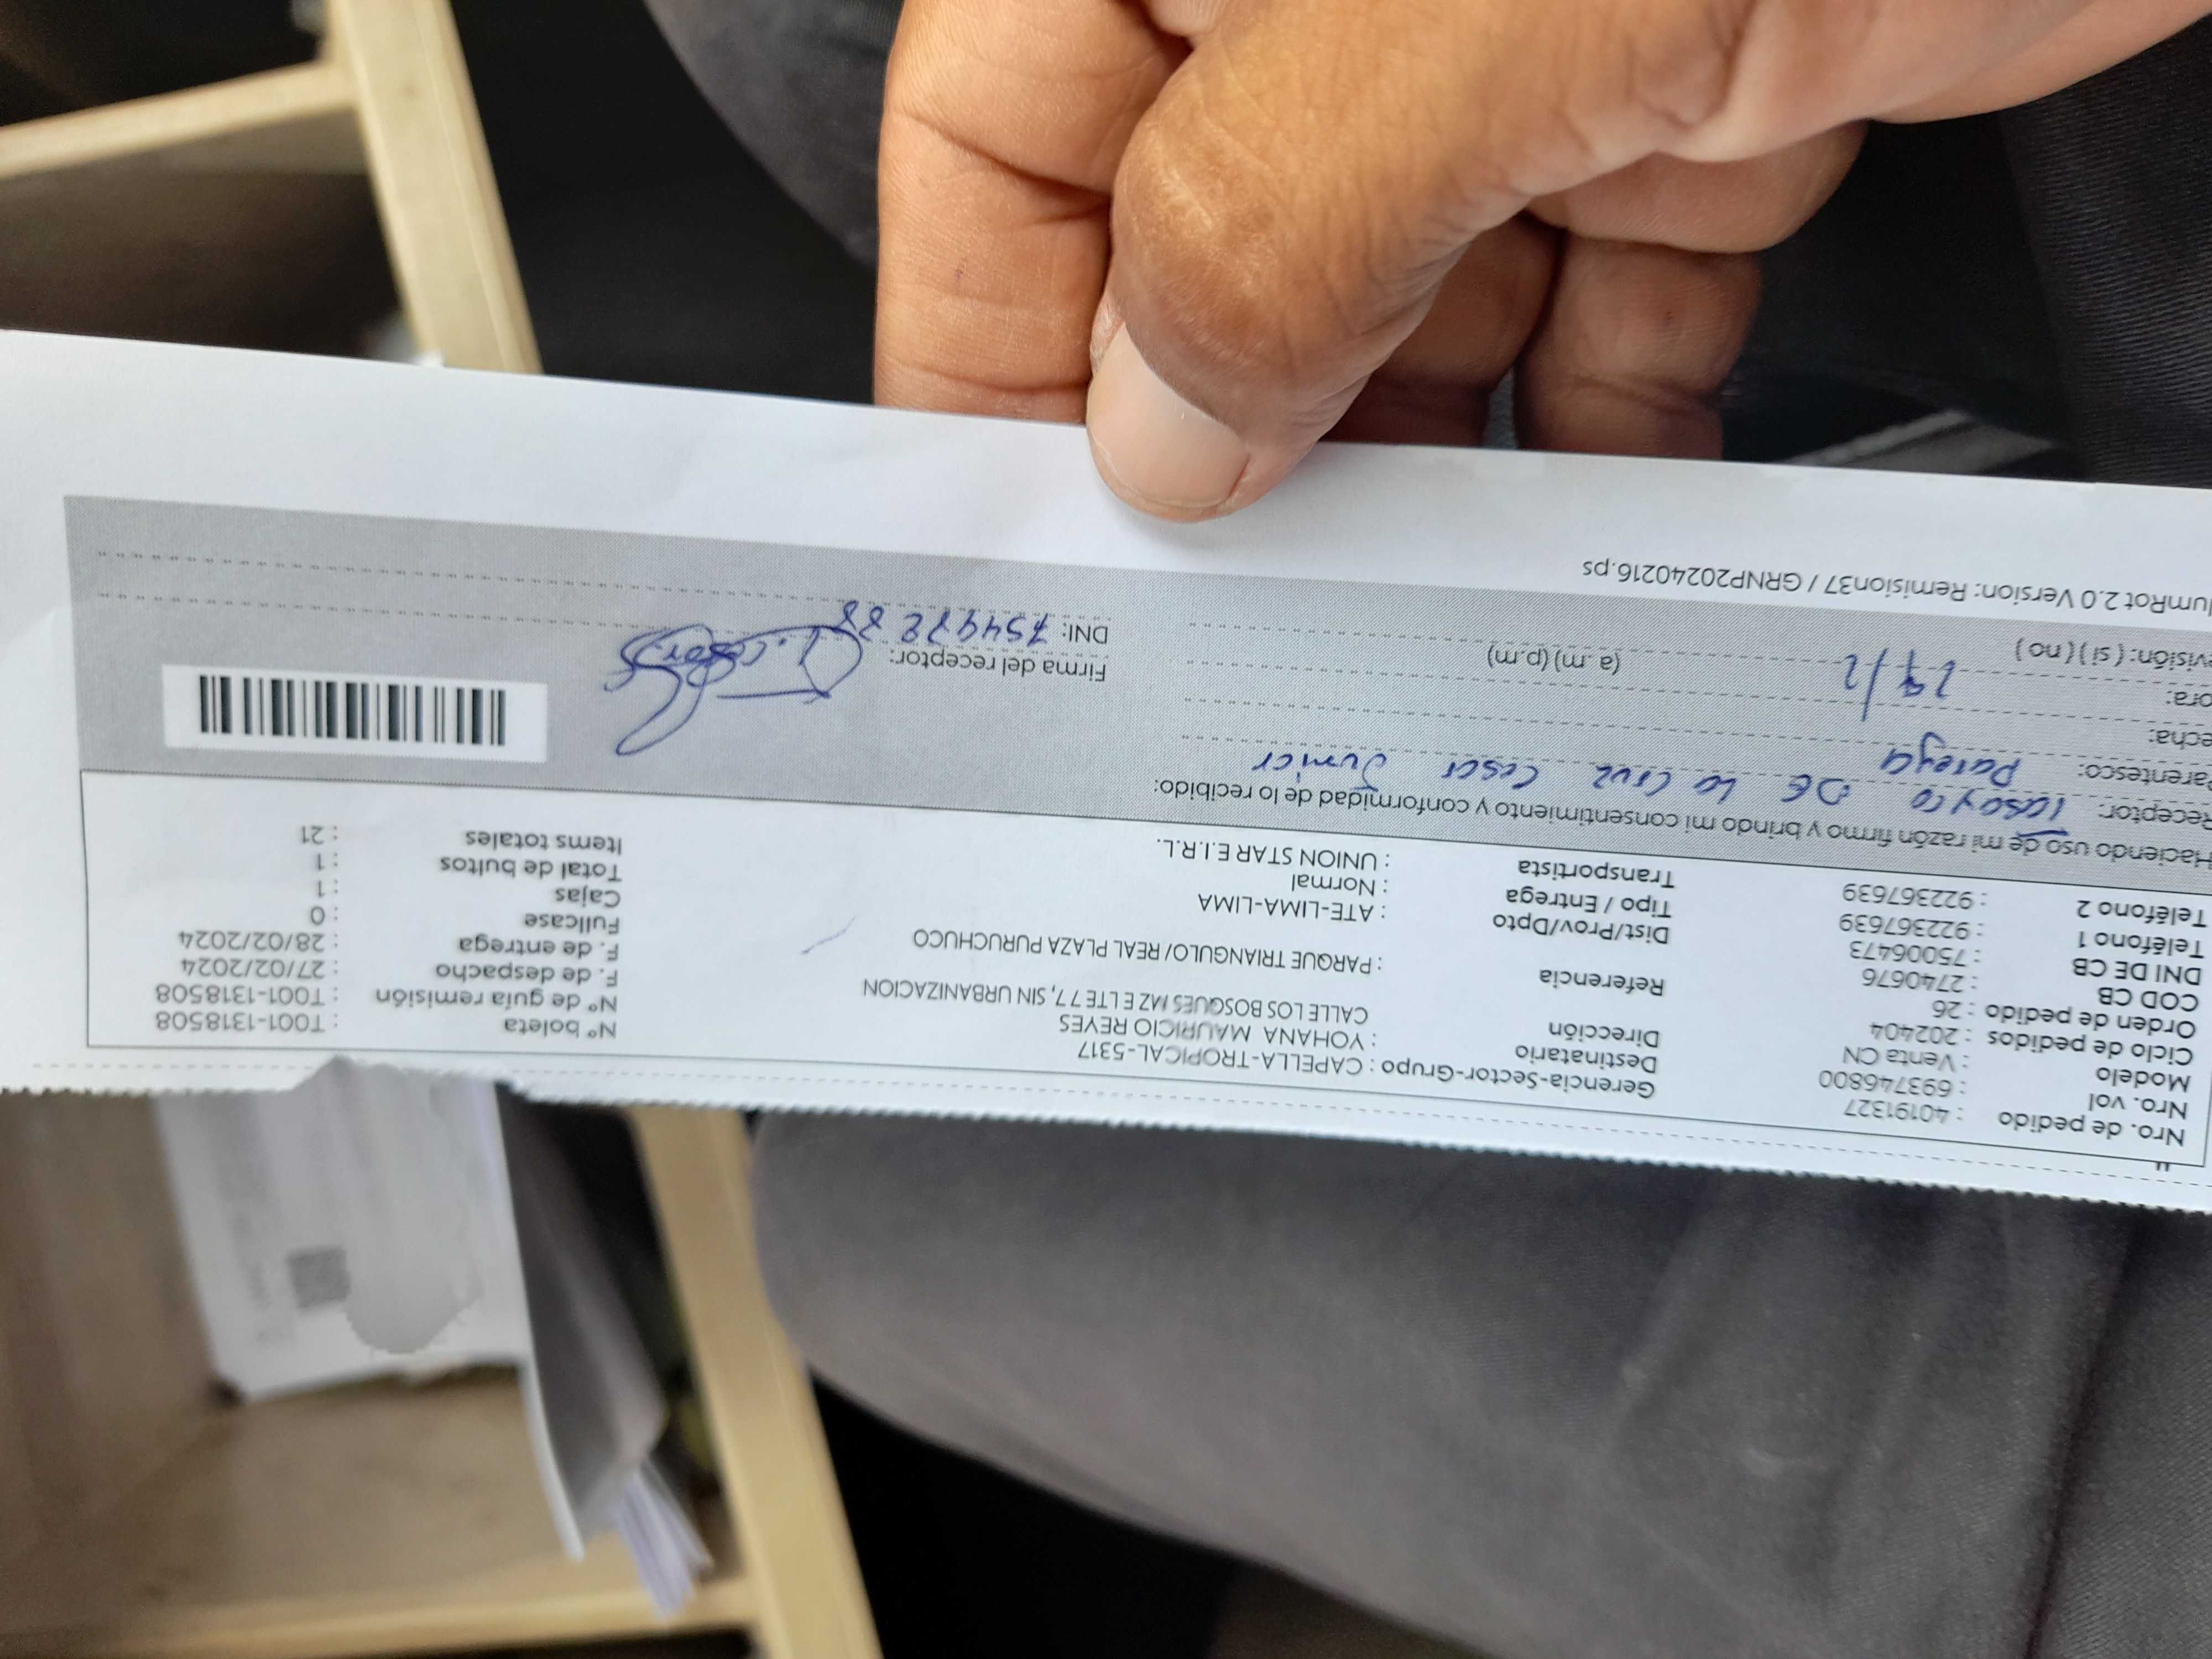 Nro. de pedido : 40191327
Nro. vol : 693746800
Modelo : Venta CN
Ciclo de pedidos : 202404
Orden de pedido : 26
COD CB : 2740676
DNI DE CB : 75006473
Teléfono 1 : 922367639
Teléfono 2 : 922367639
Gerencia-Sector-Grupo : CAPELLA-TROPICAL-5317
Destinatario : YOHANA MAURICIO REYES
Dirección CALLE LOS BOSQUES MZ E LTE 77, SIN URBANIZACION
Referencia : PARQUE TRIANGULO/ REAL PLAZA PURUCHUCO
Dist/Prov/Dpto : ATE-LIMA-LIMA
Tipo / Entrega : Normal
Transportista : UNION STAR E.I.R.L.
N° boleta : T001-1318508
N° de guía remisión : T001-1318508
F. de despacho : 27/02/2024
F. de entrega : 28/02/2024
Fullcase : 0
Cajas : 1
Total de bultos : 1
Items totales : 21
Haciendo uso de mi razón firmo y brindo mi consentimiento y conformidad de lo recibido:
Receptor: DE La Cruz Cesar Junior
Parentesco: Pareja
echa:
ora: (a .m) (p.m)
visión: ( si ) ( no )
Firma del receptor:
DNI: 75497288
umRot 2.0 Version: Remision37 / GRNP20240216.ps